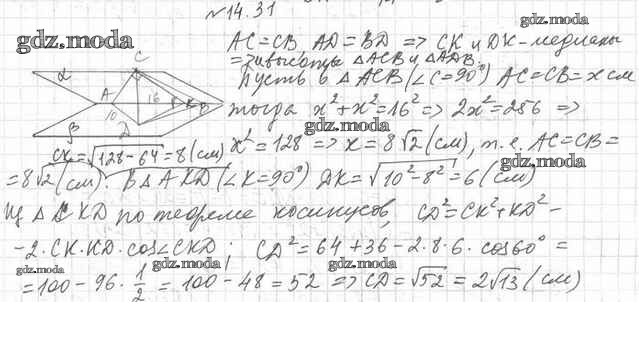 №14.31
gdz.moda
gdz.moda
AC=CB, AD=BD => CK и DK - медианы
= и высоты △ACB и △ADB.
Пусть в △ACB (∠C=90°) AC=CB=x см
тогда x²+x²=16² => 2x²=256 =>
gdz.moda
x²=128 => x=8√2 (см), т.е. AC=CB=
α
C
A
16
K
B
10
β
D
CK=√(128-64)=8(см)
gdz.moda
=8√2 (см). В △AKD (∠K=90°) DK=√(10²-8²)=6(см)
Из △CKD по теореме косинусов, CD²=CK²+KD²-
-2·CK·KD·cos∠CKD; CD²=64+36-2·8·6·cos60°=
gdz.moda
gdz.moda
gdz.moda
=100-96·1/2=100-48=52 => CD=√52=2√13 (см)